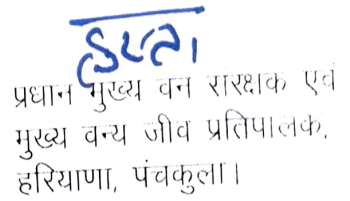 हस्ता
प्रधान मुख्य वन संरक्षक एवं
मुख्य वन्य जीव प्रतिपालक,
हरियाणा, पंचकुला।